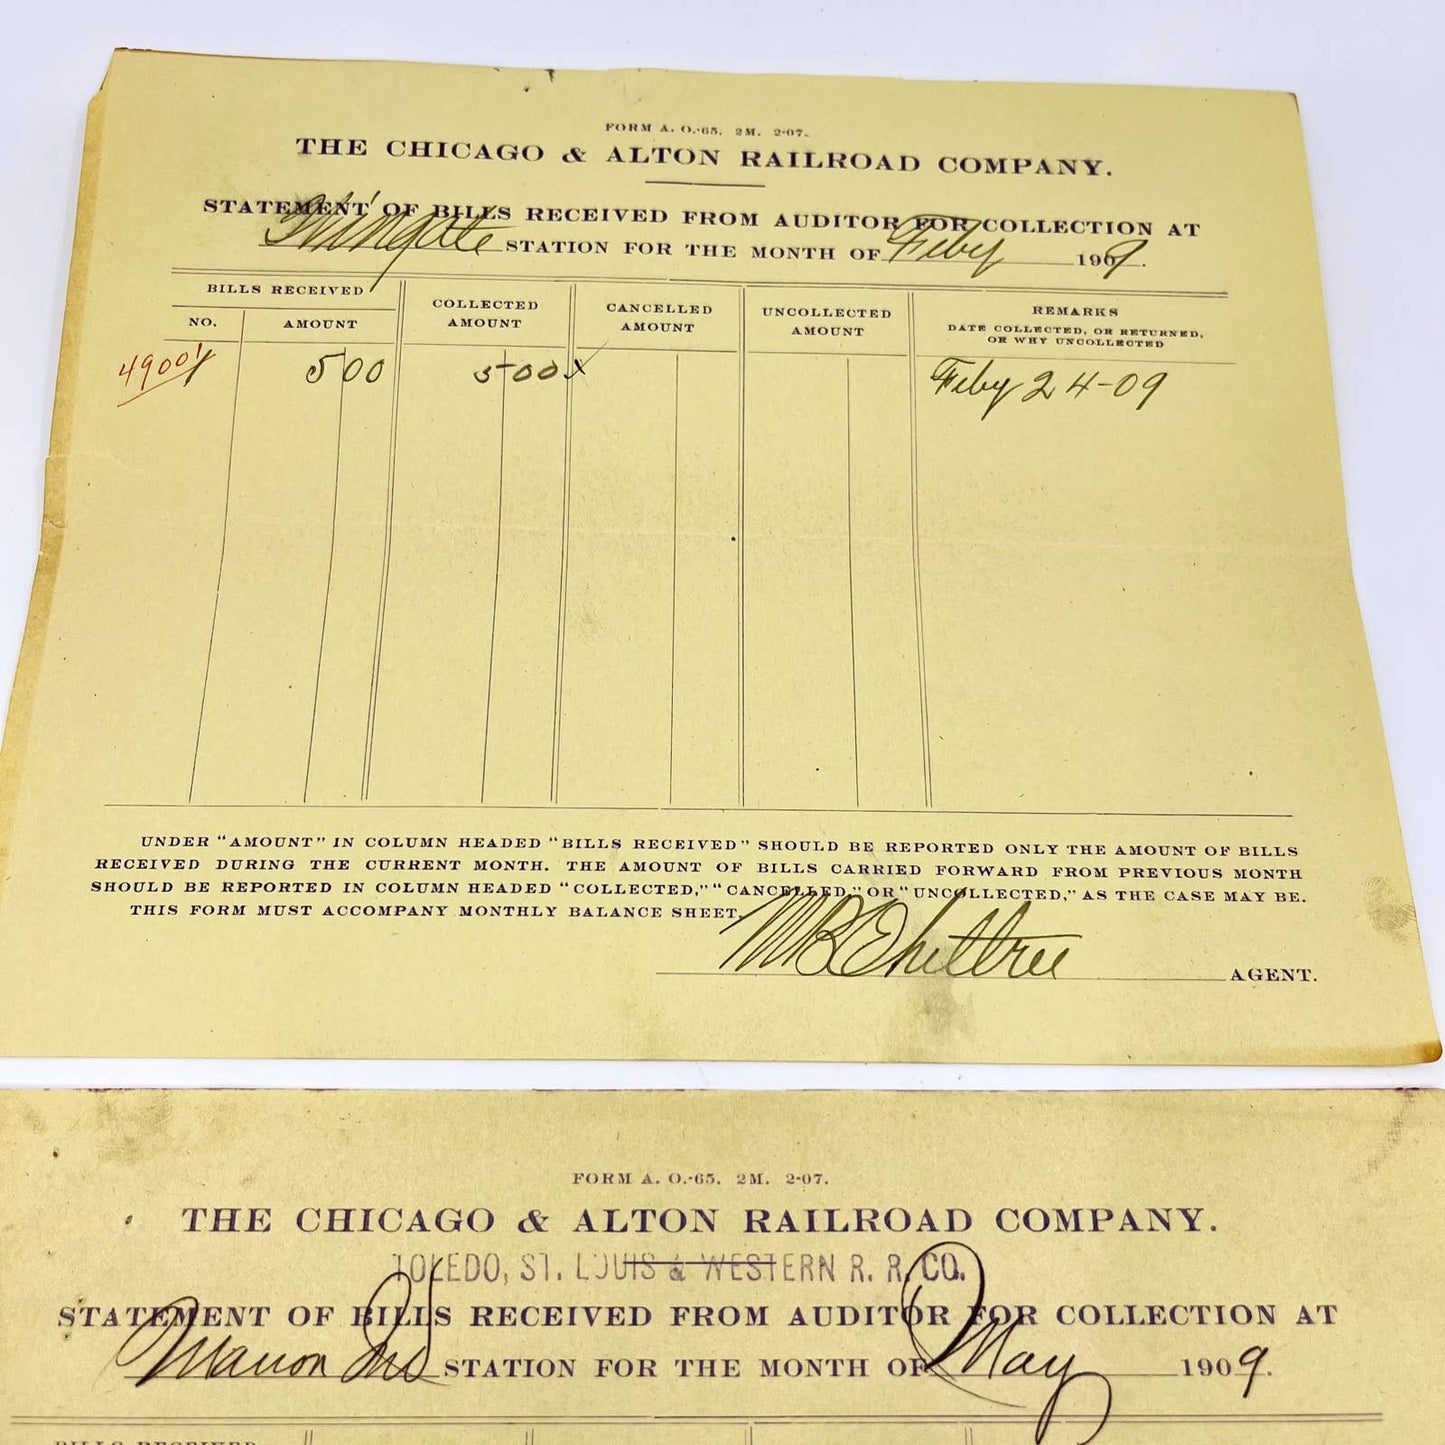 FORM A. O.-65. 2M. 2-07.
THE CHICAGO & ALTON RAILROAD COMPANY.
STATEMENT OF BILLS RECEIVED FROM AUDITOR FOR COLLECTION AT
STATION FOR THE MONTH OF Feby 1909.
BILLS RECEIVED
NO. AMOUNT
COLLECTED AMOUNT
CANCELLED AMOUNT
UNCOLLECTED AMOUNT
REMARKS
DATE COLLECTED, OR RETURNED,
OR WHY UNCOLLECTED
500 500 x Feby 24-09
UNDER "AMOUNT" IN COLUMN HEADED "BILLS RECEIVED" SHOULD BE REPORTED ONLY THE AMOUNT OF BILLS
RECEIVED DURING THE CURRENT MONTH. THE AMOUNT OF BILLS CARRIED FORWARD FROM PREVIOUS MONTH
SHOULD BE REPORTED IN COLUMN HEADED "COLLECTED," "CANCELLED," OR "UNCOLLECTED," AS THE CASE MAY BE.
THIS FORM MUST ACCOMPANY MONTHLY BALANCE SHEET.
AGENT.
FORM A. O.-65. 2M. 2-07.
THE CHICAGO & ALTON RAILROAD COMPANY.
TOLEDO, ST. LOUIS & WESTERN R. R. CO.
STATEMENT OF BILLS RECEIVED FROM AUDITOR FOR COLLECTION AT
Marion Ind STATION FOR THE MONTH OF May 1909.
BILLS RECEIVED